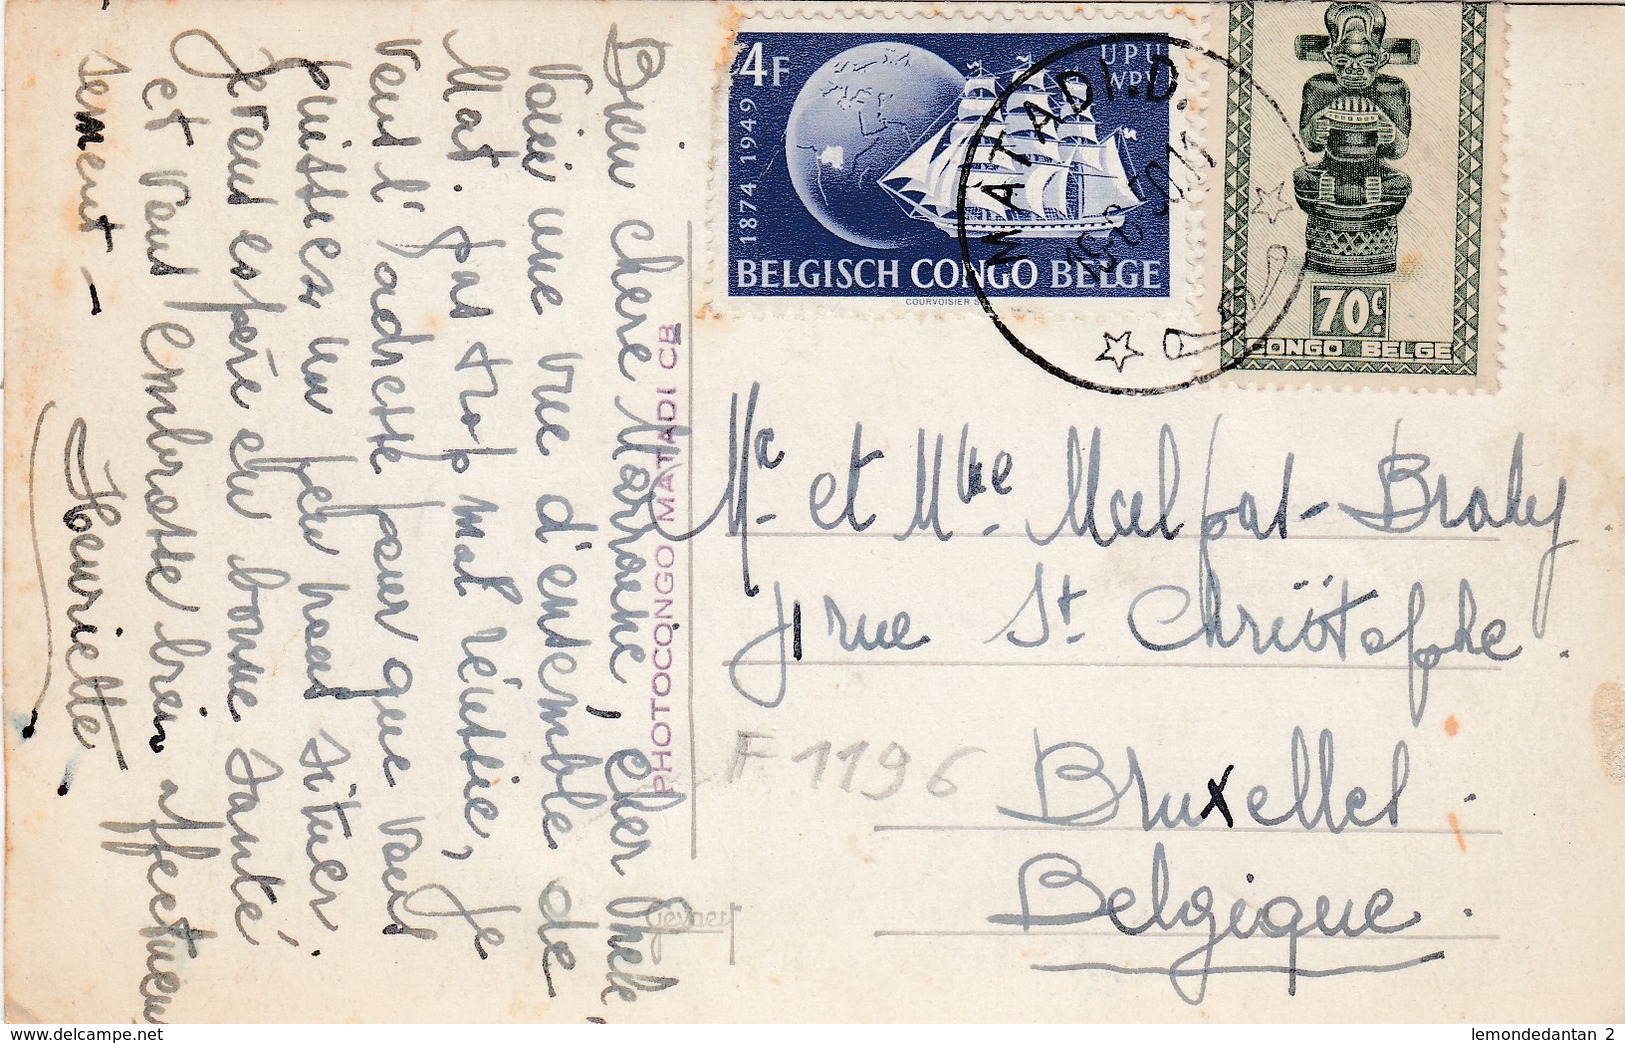 Bien chère Marraine, cher
Voici une vue d'ensemble de
Mat. pas trop mal réussie, je
veux l'adresse pour que vous
puissiez un peu nous situer.
Je vous espère en bonne santé
et vous embrasse bien affectueu
sement -
Henriette
PHOTOCONGO MATADI CB
Gevaert
4F
UPU
WPV
1874 1949
BELGISCH CONGO BELGE
COURVOISIER S
MATADI.D.
70c.
CONGO BELGE
Mr. et Mme. Malpas-Braly
rue St. Christophe.
F 1196
Bruxelles.
Belgique.
www.delcampe.net
lemondedantan 2